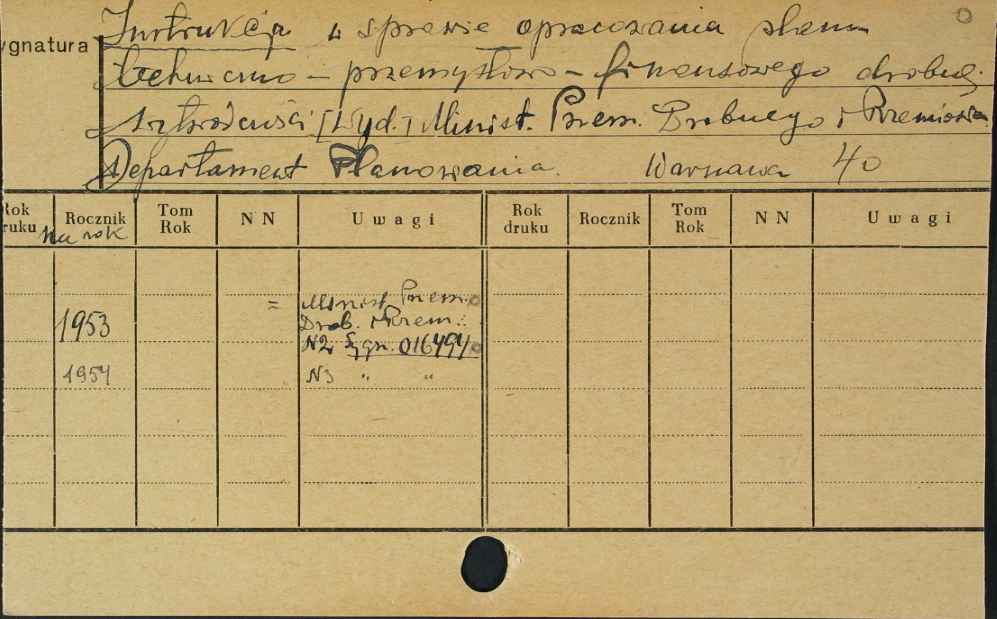 ygnatura Instrukcja w sprawie opracowania planu
techniczno – przemysłowo – finansowego drobnej
wytwórczości [Wyd.] Minist. Przem. Drobnego i Rzemiosła
Departament Planowania. Warszawa 4o
Rok druku Rocznik Tom Rok N N Uwagi Rok druku Rocznik Tom Rok N N Uwagi
na rok
= Minist. Przem.
1953 Drob. i Rzem.:
N2 Sygn. 016494
1954 N3 " "